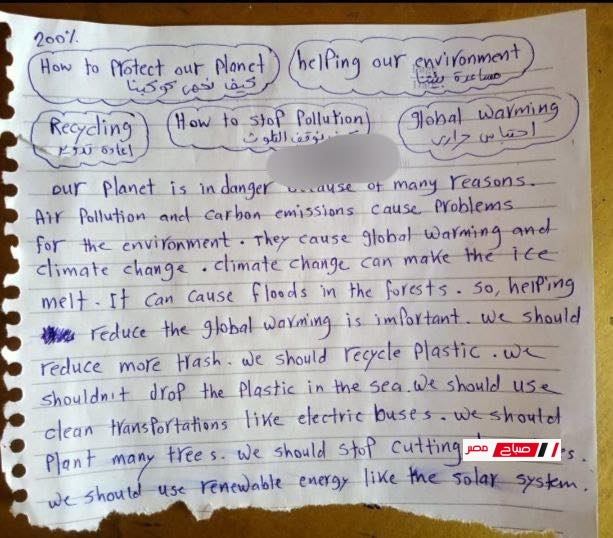 200%
How to Protect our Planet
كيف نحمى كوكبنا
helping our environment
مساعدة بيئتنا
Recycling
اعادة تدوير
How to stop Pollution
نوقف التلوث
global warming
احتباس حرارى
our Planet is in danger because of many reasons.
Air Pollution and carbon emissions cause Problems
for the environment. They cause global warming and
climate change. climate change can make the ice
melt. It can cause floods in the forests. so, helping
reduce the global warming is important. we should
reduce more trash. we should recycle Plastic. we
shouldn't drop the Plastic in the sea. we should use
clean transportations like electric buses. we should
Plant many trees. we should stop cutting
we should use renewable energy like the solar system.
صباح مصر